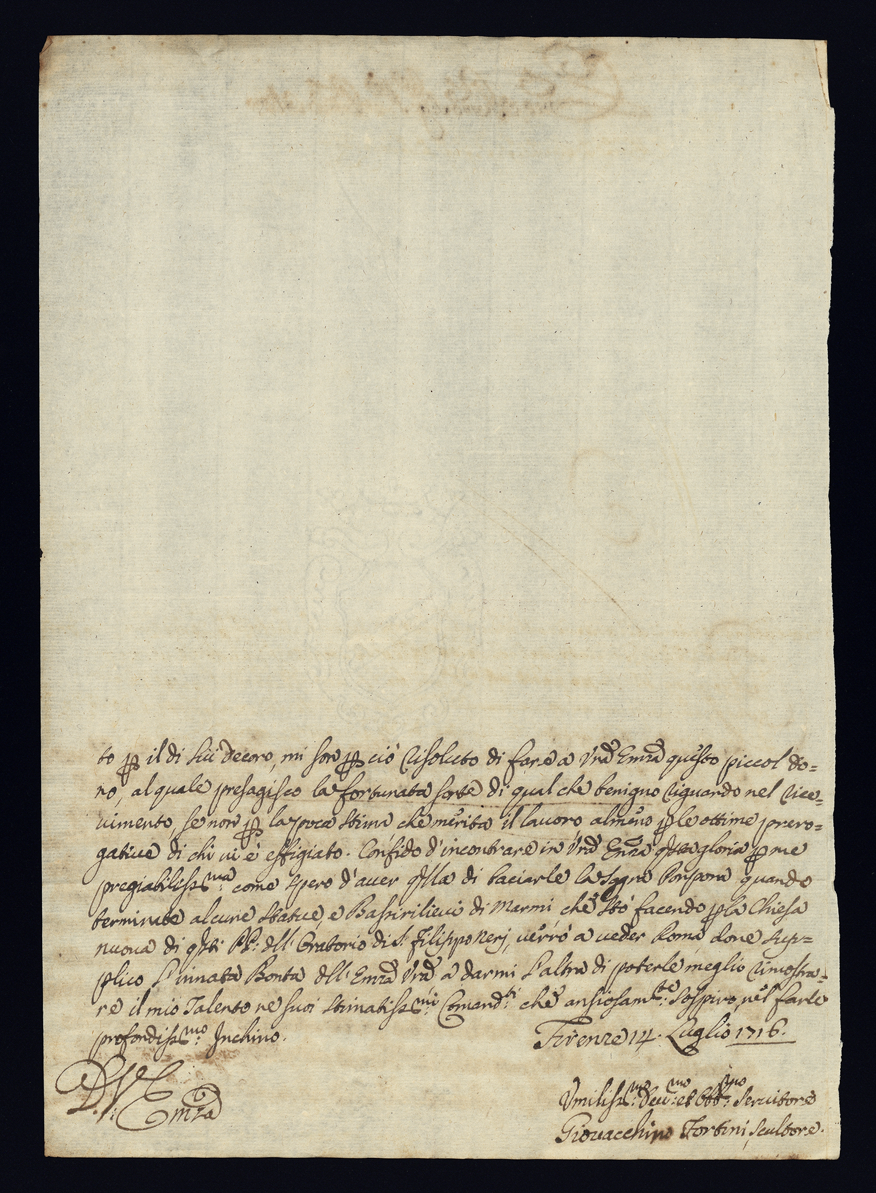 to p il di Lui decoro, mi son p ciò risoluto di fare a Vra Emza questo piccol do=
no, al quale presagisco la fortunata sorte di qual che benigno riguardo nel rice=
vimento se non p la poca stima che merita il lavoro almeno p le ottime prero=
gative di chi vi è effigiato. Confido d'incontrare in Vra Emza qsta gloria p me
pregiabiliss.ma come spero d'aver qlla di baciarle la Sagra Porpora quando
terminate alcune statue e Bassirilievi di Marmi che stò facendo p la Chiesa
nuova di qsti PP. dell' Oratorio di S. Filippo Nerj, verrò a veder Roma dove sup=
plico L'innata Bontà dll' Emza Vra a darmi L'altra di poterle meglio rimostra=
re il mio Talento ne suoi stimatiss.mi Comand.ti che ansiosam.te sospiro, nel farle
profondiss.mo Inchino.
Firenze 14. Luglio 1716.
D. V. Emza
Vmiliss.mo Dev.mo et Obb.mo Servitore
Giovacchino Fortini, scultore.